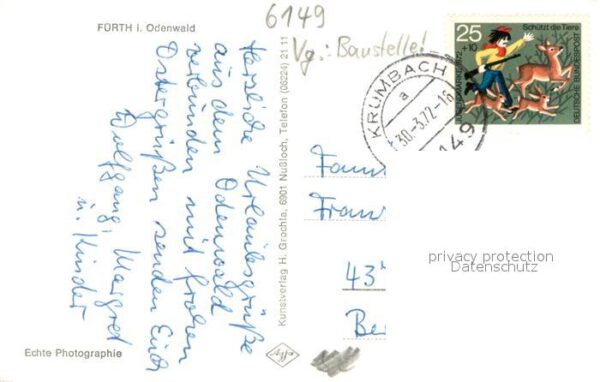 6149
Vg.: Baustelle!
FÜRTH i. Odenwald
Herzliche Urlaubsgrüße
aus dem Odenwald
verbunden mit frohen
Ostergrüßen senden Euch
Wolfgang, Margret
u. Kinder
Echte Photographie
Kunstverlag H. Grochla, 6901 Nußloch, Telefon (06224) 21 11
Agfa
25
+10
Schützt die Tiere
JUGENDMARKE 1972
DEUTSCHE BUNDESPOST
KRUMBACH
a
30.-3.72-16
6149
Fam
Fran
43
Be
privacy protection
Datenschutz